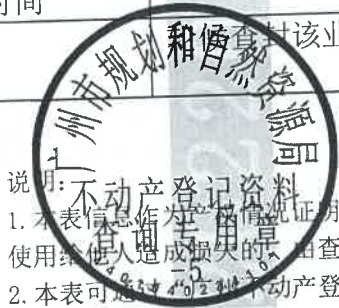 时间
和
查封该业
广州市规划和自然资源局
不动产登记资料
查询专用章
-5
说明:
1. 本表信息作为产权情况证明
使用给他人造成损失的,由查
2. 本表可 不动产登